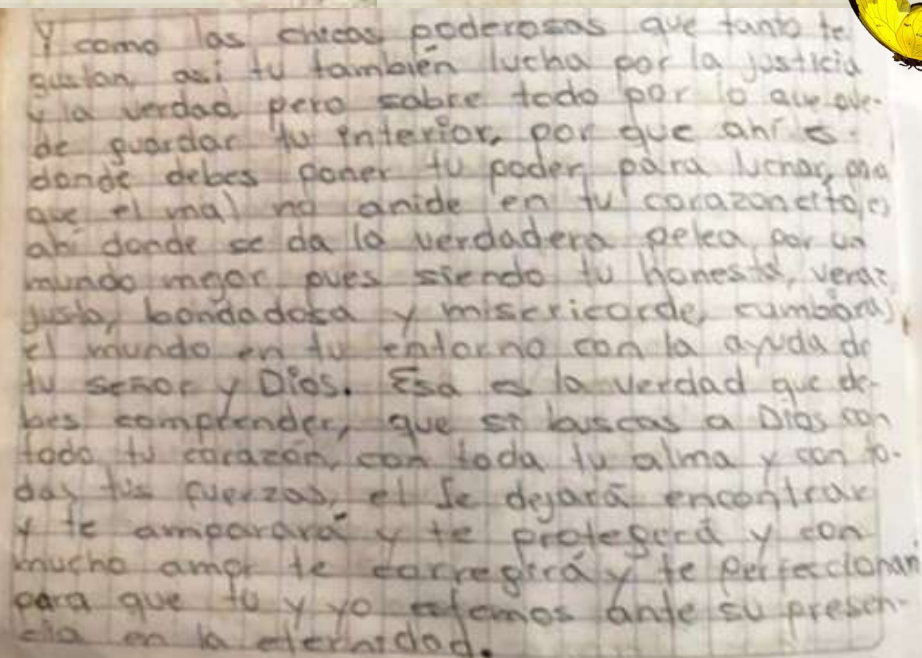 Y como las chicas poderosas que tanto te
gustan, asi tu también lucha por la justicia
y la verdad pero sobre todo por lo que pue-
de guardar tu interior, por que ahí es
donde debes poner tu poder, para luchar, para
que el mal no anide en tu corazoncito, es
ahí donde se da la verdadera pelea por un
mundo mejor pues siendo tu honesta, veraz
justa, bondadosa y misericorde,
el mundo en tu entorno con la ayuda de
tu señor y Dios. Esa es la verdad que de-
bes comprender, que si buscas a Dios con
todo tu corazón, con toda tu alma y con to-
das tus fuerzas, el se dejará encontrar
y te amparará y te protegerá y con
mucho amor te corregirá y te perfeccionará
para que tu y yo estemos ante su presen-
cia en la eternidad.